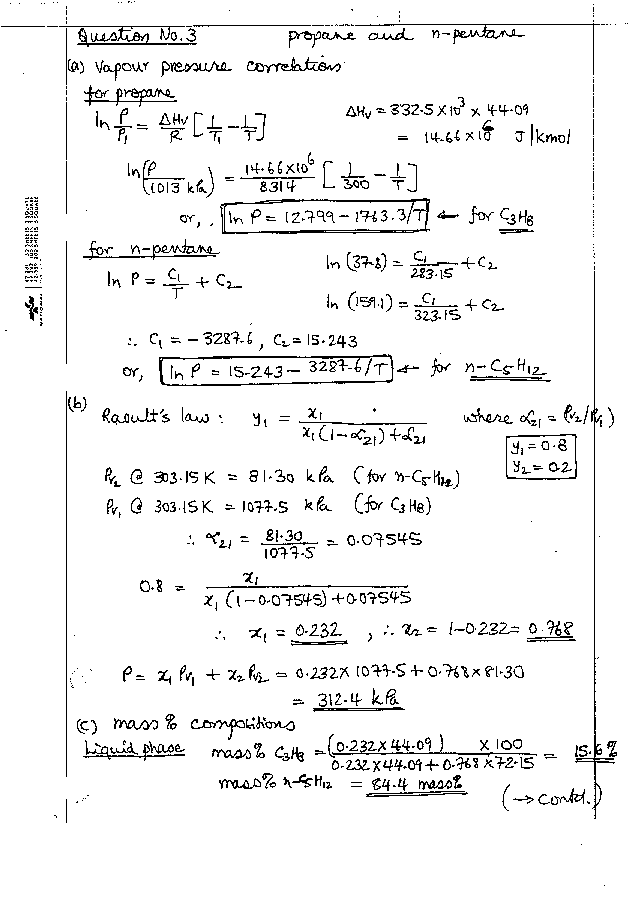 Question No.3 propane and n-pentane
(a) Vapour pressure correlations
for propane
ln P/P₁ = ΔHv/R [1/T₁ − 1/T] ΔHv = 332.5 × 10³ × 44.09
= 14.66 × 10⁶ J/kmol
ln(P/1013 kPa) = 14.66×10⁶/8314 [1/300 − 1/T]
or, ln P = 12.799 − 1763.3/T ← for C₃H₈
for n-pentane
ln P = C₁/T + C₂ ln (37.8) = C₁/283.15 + C₂
ln (159.1) = C₁/323.15 + C₂
∴ C₁ = − 3287.6, C₂ = 15.243
or, ln P = 15.243 − 3287.6/T ← for n-C₅H₁₂
(b) Raoult's law: y₁ = x₁/(x₁(1−α₂₁)+α₂₁) where α₂₁ = Pv₂/Pv₁)
y₁ = 0.8
y₂ = 0.2
Pv₂ @ 303.15K = 81.30 kPa (for n-C₅H₁₂)
Pv₁ @ 303.15K = 1077.5 kPa (for C₃H₈)
∴ α₂₁ = 81.30/1077.5 = 0.07545
0.8 = x₁/(x₁(1−0.07545)+0.07545)
∴ x₁ = 0.232, ∴ x₂ = 1−0.232 = 0.768
P = x₁ Pv₁ + x₂ Pv₂ = 0.232 × 1077.5 + 0.768 × 81.30
= 312.4 kPa
(c) mass % compositions
Liquid phase mass% C₃H₈ = (0.232×44.09) × 100/(0.232×44.09 + 0.768×72.15) = 15.6%
mass% n-C₅H₁₂ = 84.4 mass%
(→ Contd.)